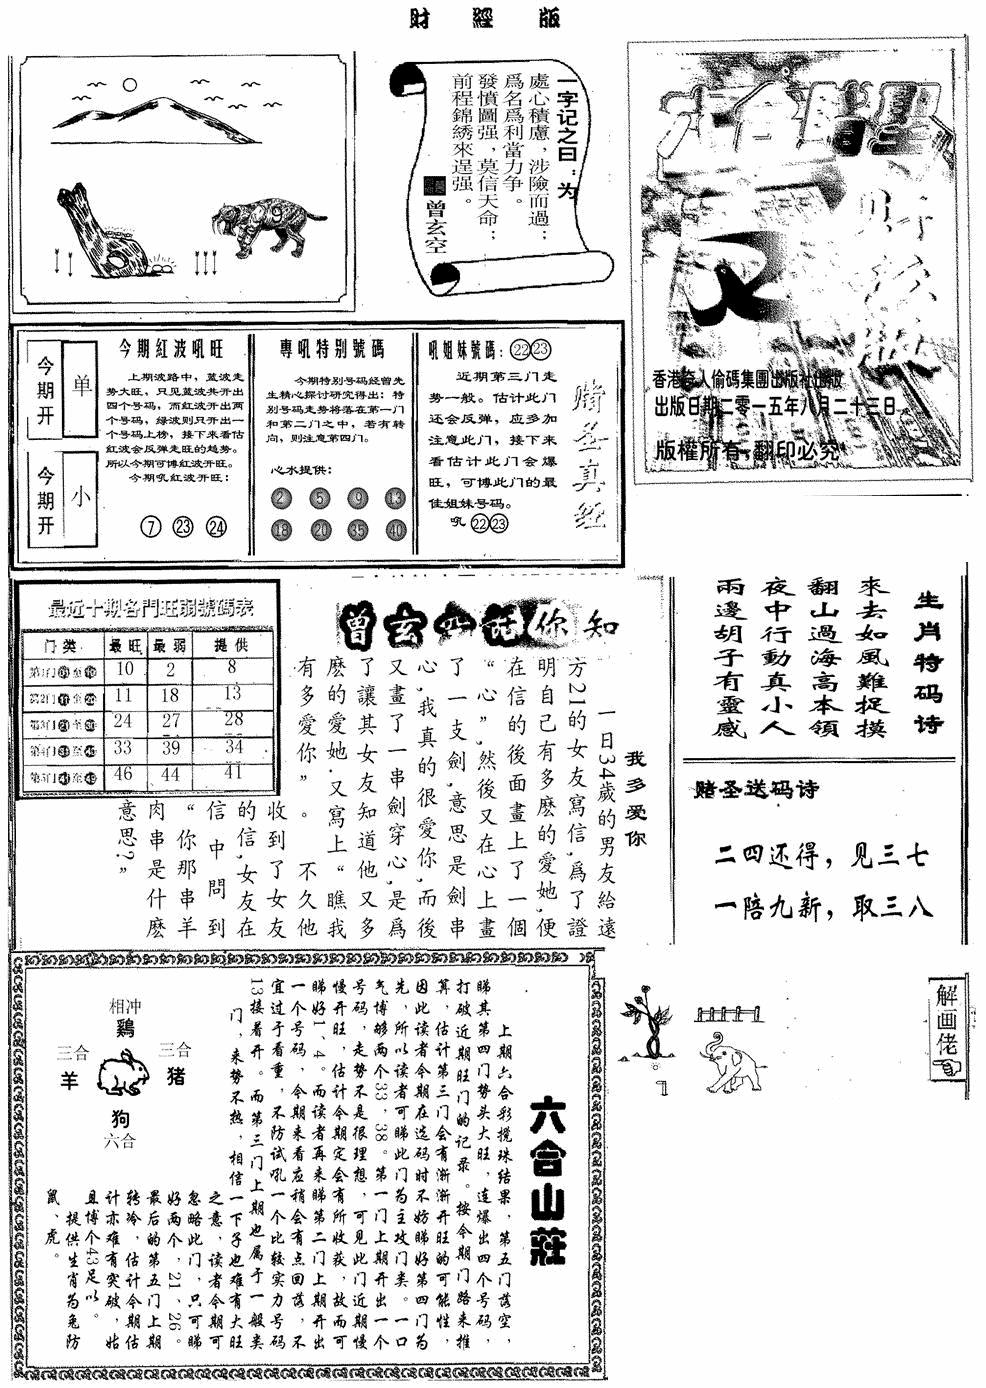 財經版
一字记之曰：为
處心積慮，涉險而過；
爲名爲利當力争。
發憤圖强，莫信天命；
前程錦綉來逞强。
曾玄空
六合賭聖
财经版
香港奇人偷碼集團出版社出版
出版日期二零一五年八月二十三日
版權所有，翻印必究
今期开 单
今期开 小
今期红波吼旺
上期波路中，蓝波走
势大旺，只见蓝波共开出
四个号码，而红波开出两
个号码，绿波则只开出一
个号码上榜，接下来看估
红波会反弹走旺的趋势。
所以今期可博红波开旺。
今期吼红波开旺：
7 23 24
專吼特别號碼
今期特别号码经曾先
生精心探讨研究得出：特
别号码走势将落在第一门
和第二门之中，若有转
向，则注意第四门。
心水提供：
2 5 9 13
18 20 35 40
吼姐妹號碼：22 23
近期第三门走
势一般。估计此门
还会反弹，应多加
注意此门，接下来
看估计此门会爆
旺，可博此门的最
佳姐妹号码。
吼 22 23
赌圣真经
最近十期各門旺弱號碼表
门类 最旺 最弱 提供
第1门 至 10 2 8
第2门 至 11 18 13
第3门 至 24 27 28
第4门 至 33 39 34
第5门 至 46 44 41
曾玄空话你知
我多爱你
一日34歲的男友給遠
方21的女友寫信，爲了證
明自己有多麽的愛她，便
在信的後面畫上了一個
“心”，然後又在心上畫
了一支劍，意思是劍串
心，我真的很愛你，而後
又畫了一串劍穿心，是爲
了讓其女友知道他又多
麽的愛她，又寫上“瞧我
有多愛你”。
不久他
收到了女友
的信，女友在
信中問到
“你那串羊
肉串是什麽
意思？”
生肖特码诗
來去如風難捉摸
翻山過海高本領
夜中行動真小人
兩邊胡子有靈感
赌圣送码诗
二四还得，见三七
一陪九新，取三八
解画佬
相冲
鷄
三合 羊
三合 猪
狗
六合
六合山莊
上期六合彩搅珠结果，第五门落空，
睇其第四门势头大旺，连爆出四个号码，
打破近期旺门的记录。按今期门路来推
算，估计第三门会有渐渐开旺的可能性，
因此读者今期在选码时不妨睇好第四门为
先，所以读者可睇此门为主攻门类。一口
气博够两个33，38。第一门上期开出一个
号码，走势不是很理想，可见此门近期慢
慢开旺，估计今期定会有所收获，故而可
睇好1、4。而读者再来睇第二门上期开出
一个号码，今期来看应稍会有点回落，不
宜过于看重，不防试吼一个比较实力号码
13接着开。而第三门上期也属于一般类
门，来势不热，相信一下子也难有大旺
之意，读者今期可
忽略此门，只可睇
好两个，21、26。
最后的第五门上期
转冷，估计今期估
计亦难有突破，姑
且博个43足以。
提供生肖为兔防
鼠、虎。